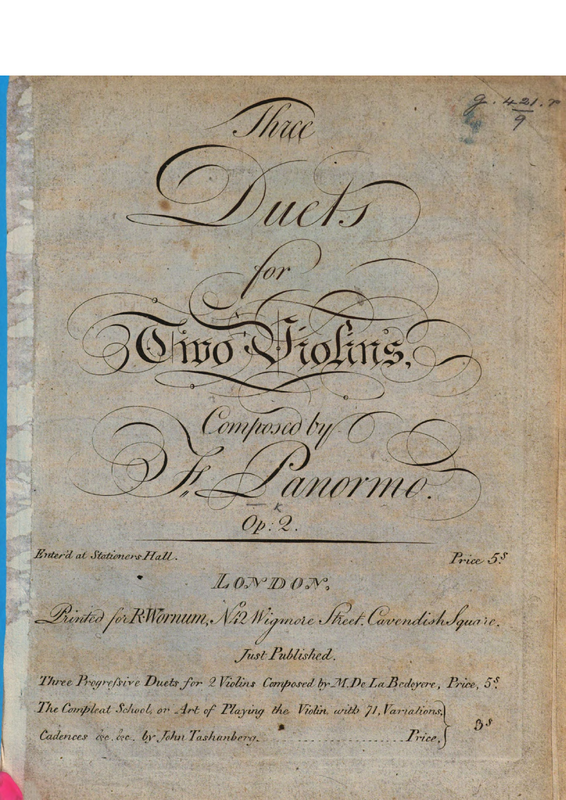 g. 421. r
9
Three
Duets
for
Two Violins,
Composed by
Fr. Panormo.
Op: 2.
Enter'd at Stationers Hall.
Price 5s
LONDON,
Printed for R. Wornum, No. 42 Wigmore Street, Cavendish Square.
Just Published.
Three Progressive Duets for 2 Violins Composed by M. De La Bedoyere, Price, 5s.
The Compleat School, or Art of Playing the Violin with 71, Variations,
Cadences &c. &c. by John Tashanberg. Price, } 3s